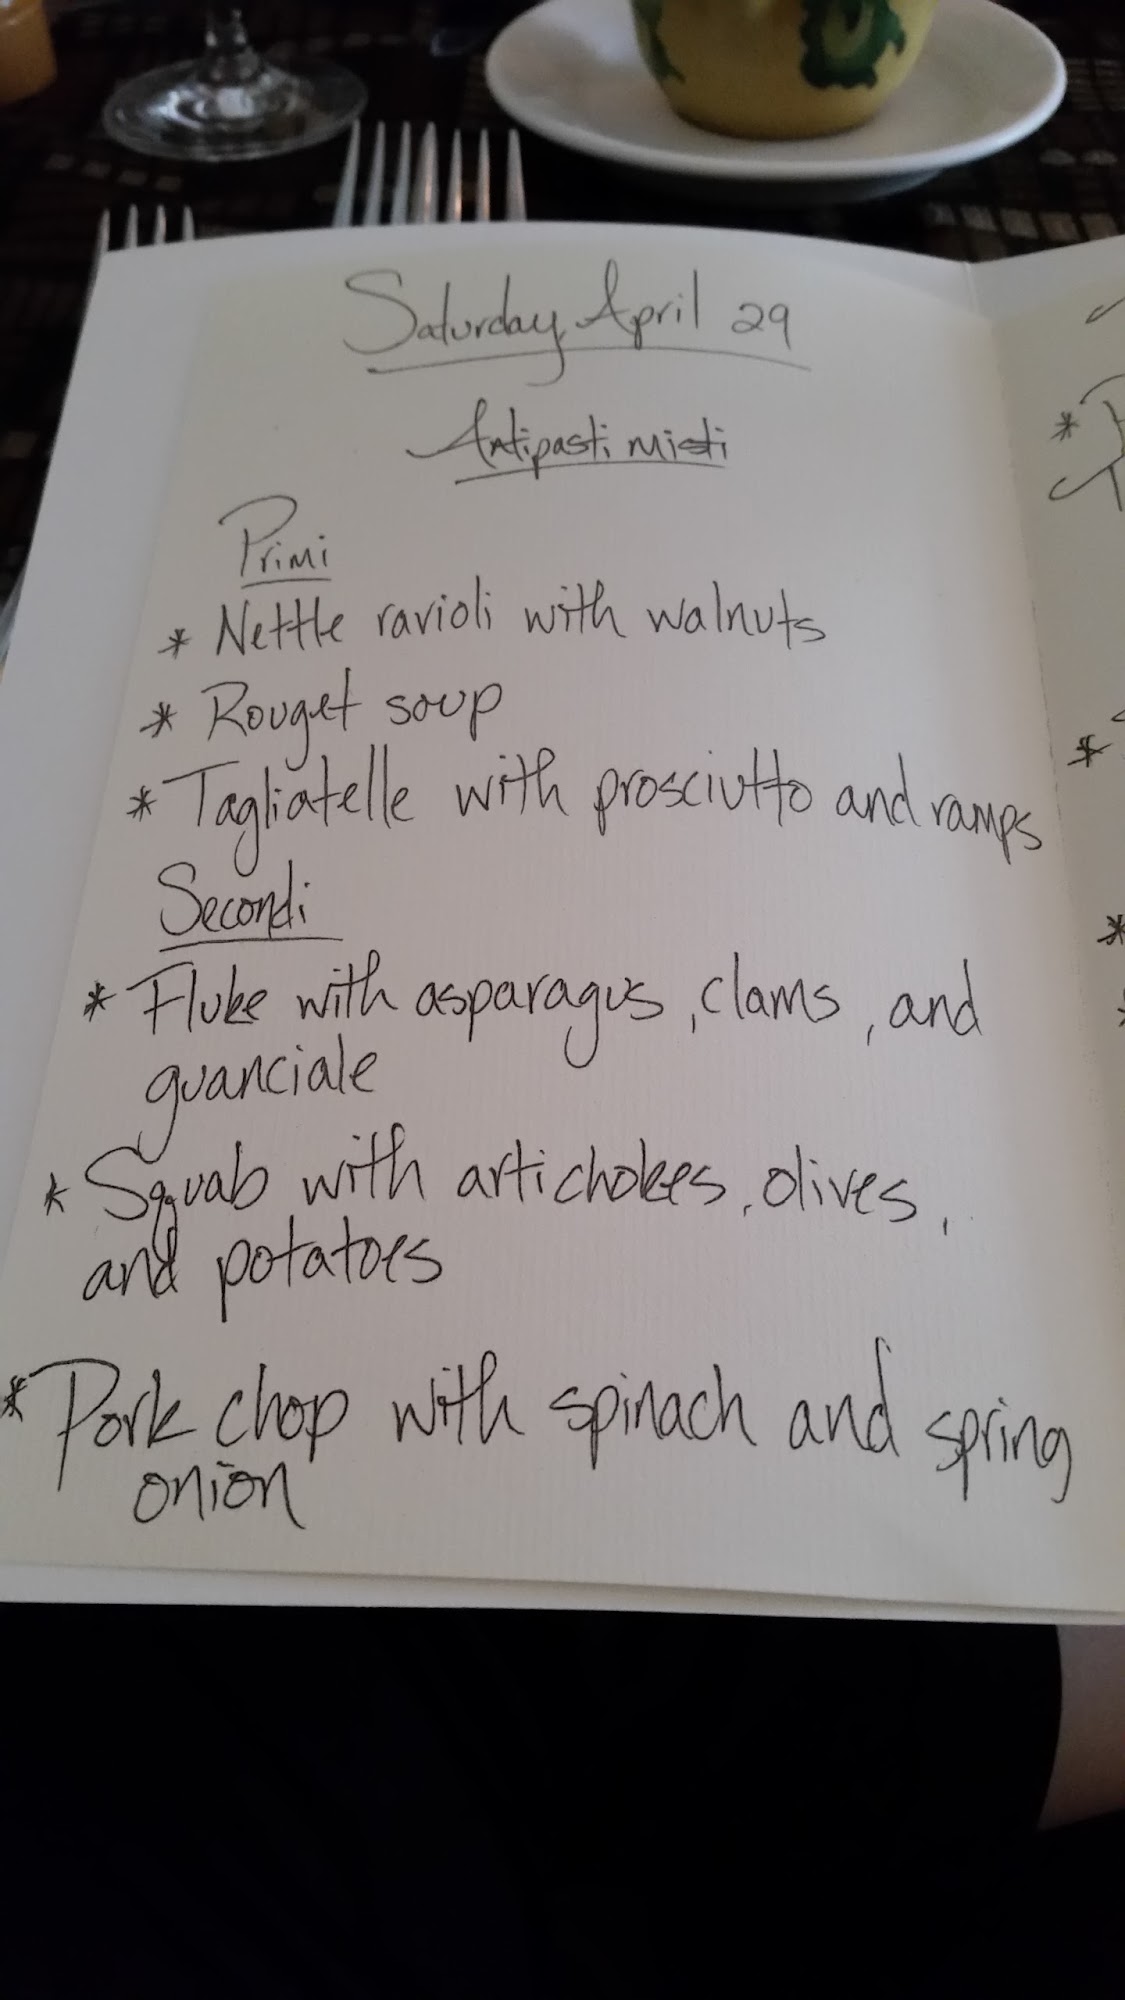 Saturday, April 29
Antipasti misti
Primi
* Nettle ravioli with walnuts
* Rouget soup
* Tagliatelle with prosciutto and ramps
Secondi
* Fluke with asparagus, clams, and
guanciale
* Squab with artichokes, olives,
and potatoes
* Pork chop with spinach and spring
onion